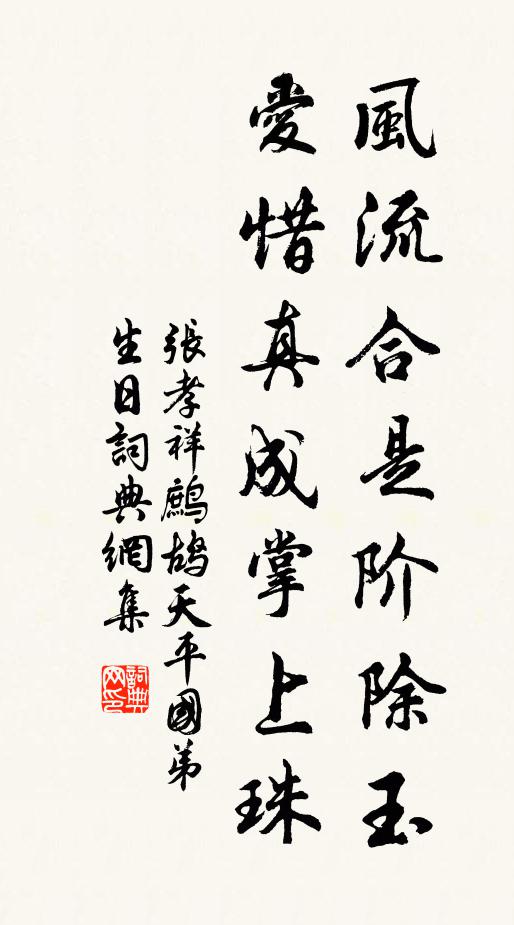 風流合是阶除玉
愛惜真成掌上珠
張孝祥鷓鴣天平國弟
生日詞典網集
詞典网印